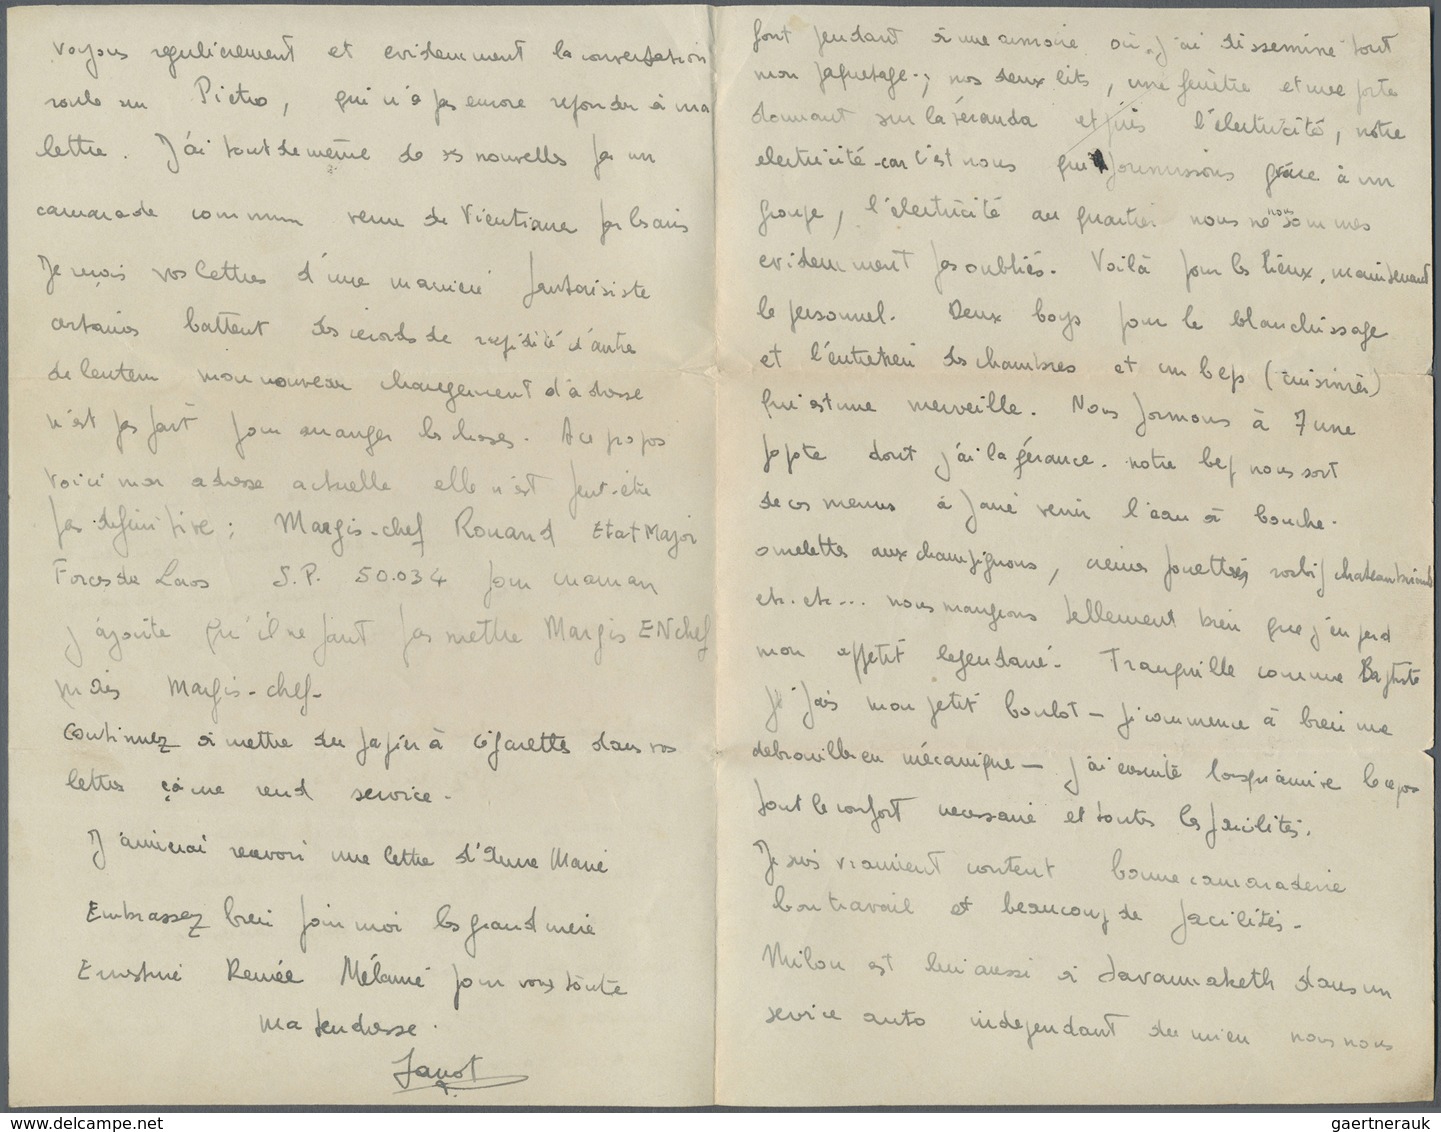 voyons regulièrement et evidemment la conversation
roule sur Pietro, qui n'a pas encore repondu à ma
lettre. J'ai tout de même de ses nouvelles par un
camarade commun venu de Vientiane par les airs
Je reçois vos lettres d'une manière fantaisiste
certaines battent des records de rapidité d'autre
de lenteur mon nouveau changement d'adresse
n'est pas fait pour arranger les choses. A ce propos
voici mon adresse actuelle elle n'est peut-être
pas definitive : Margis-chef Rouand Etat Major
Forces du Laos S.P. 50.034 pour maman
j'ajoute qu'il ne faut pas mettre Margis EN chef
mais Margis-chef-
Continuez à mettre du papier à cigarettes dans vos
lettres çà me rend service.
J'aimerai recevoir une lettre d'Anne Marie
Embrassez bien pour moi les grand mère
Ernestine Renée Mélanie pour vous toute
ma tendresse.
Janot
font pendant à une armoire où j'ai disseminé tout
mon paquetage ; nos deux lits, une fenêtre et une porte
donnant sur la véranda et puis l'électricité, notre
electricité car c'est nous qui fournissons grâce à un
groupe, l'électricité au quartier nous ne nous sommes
evidemment pas oubliés. Voilà pour les lieux, maintenant
le personnel. Deux boys pour le blanchissage
et l'entretien des chambres et un bep (cuisinier)
qui est une merveille. Nous formons à 7 une
popote dont j'ai la gérance. notre bep nous sort
de ces menus à faire venir l'eau à bouche.
omelettes aux champignons, crèmes fouettées, rosbif chateaubriand
etc. etc... nous mangeons tellement bien que j'en perd
mon appetit legendaire. Tranquille comme Baptiste
je fais mon petit boulot – je commence à bien me
debrouiller en mécanique – j'ai ensuite lorsqu'arrive le repos
tout le confort necessaire et toutes les facilités.
Je suis vraiment content bonne camaraderie
bon travail et beaucoup de facilités.
Milou est lui aussi à Savannaketh dans un
service auto independant du mien nous nous
gaertnerauk